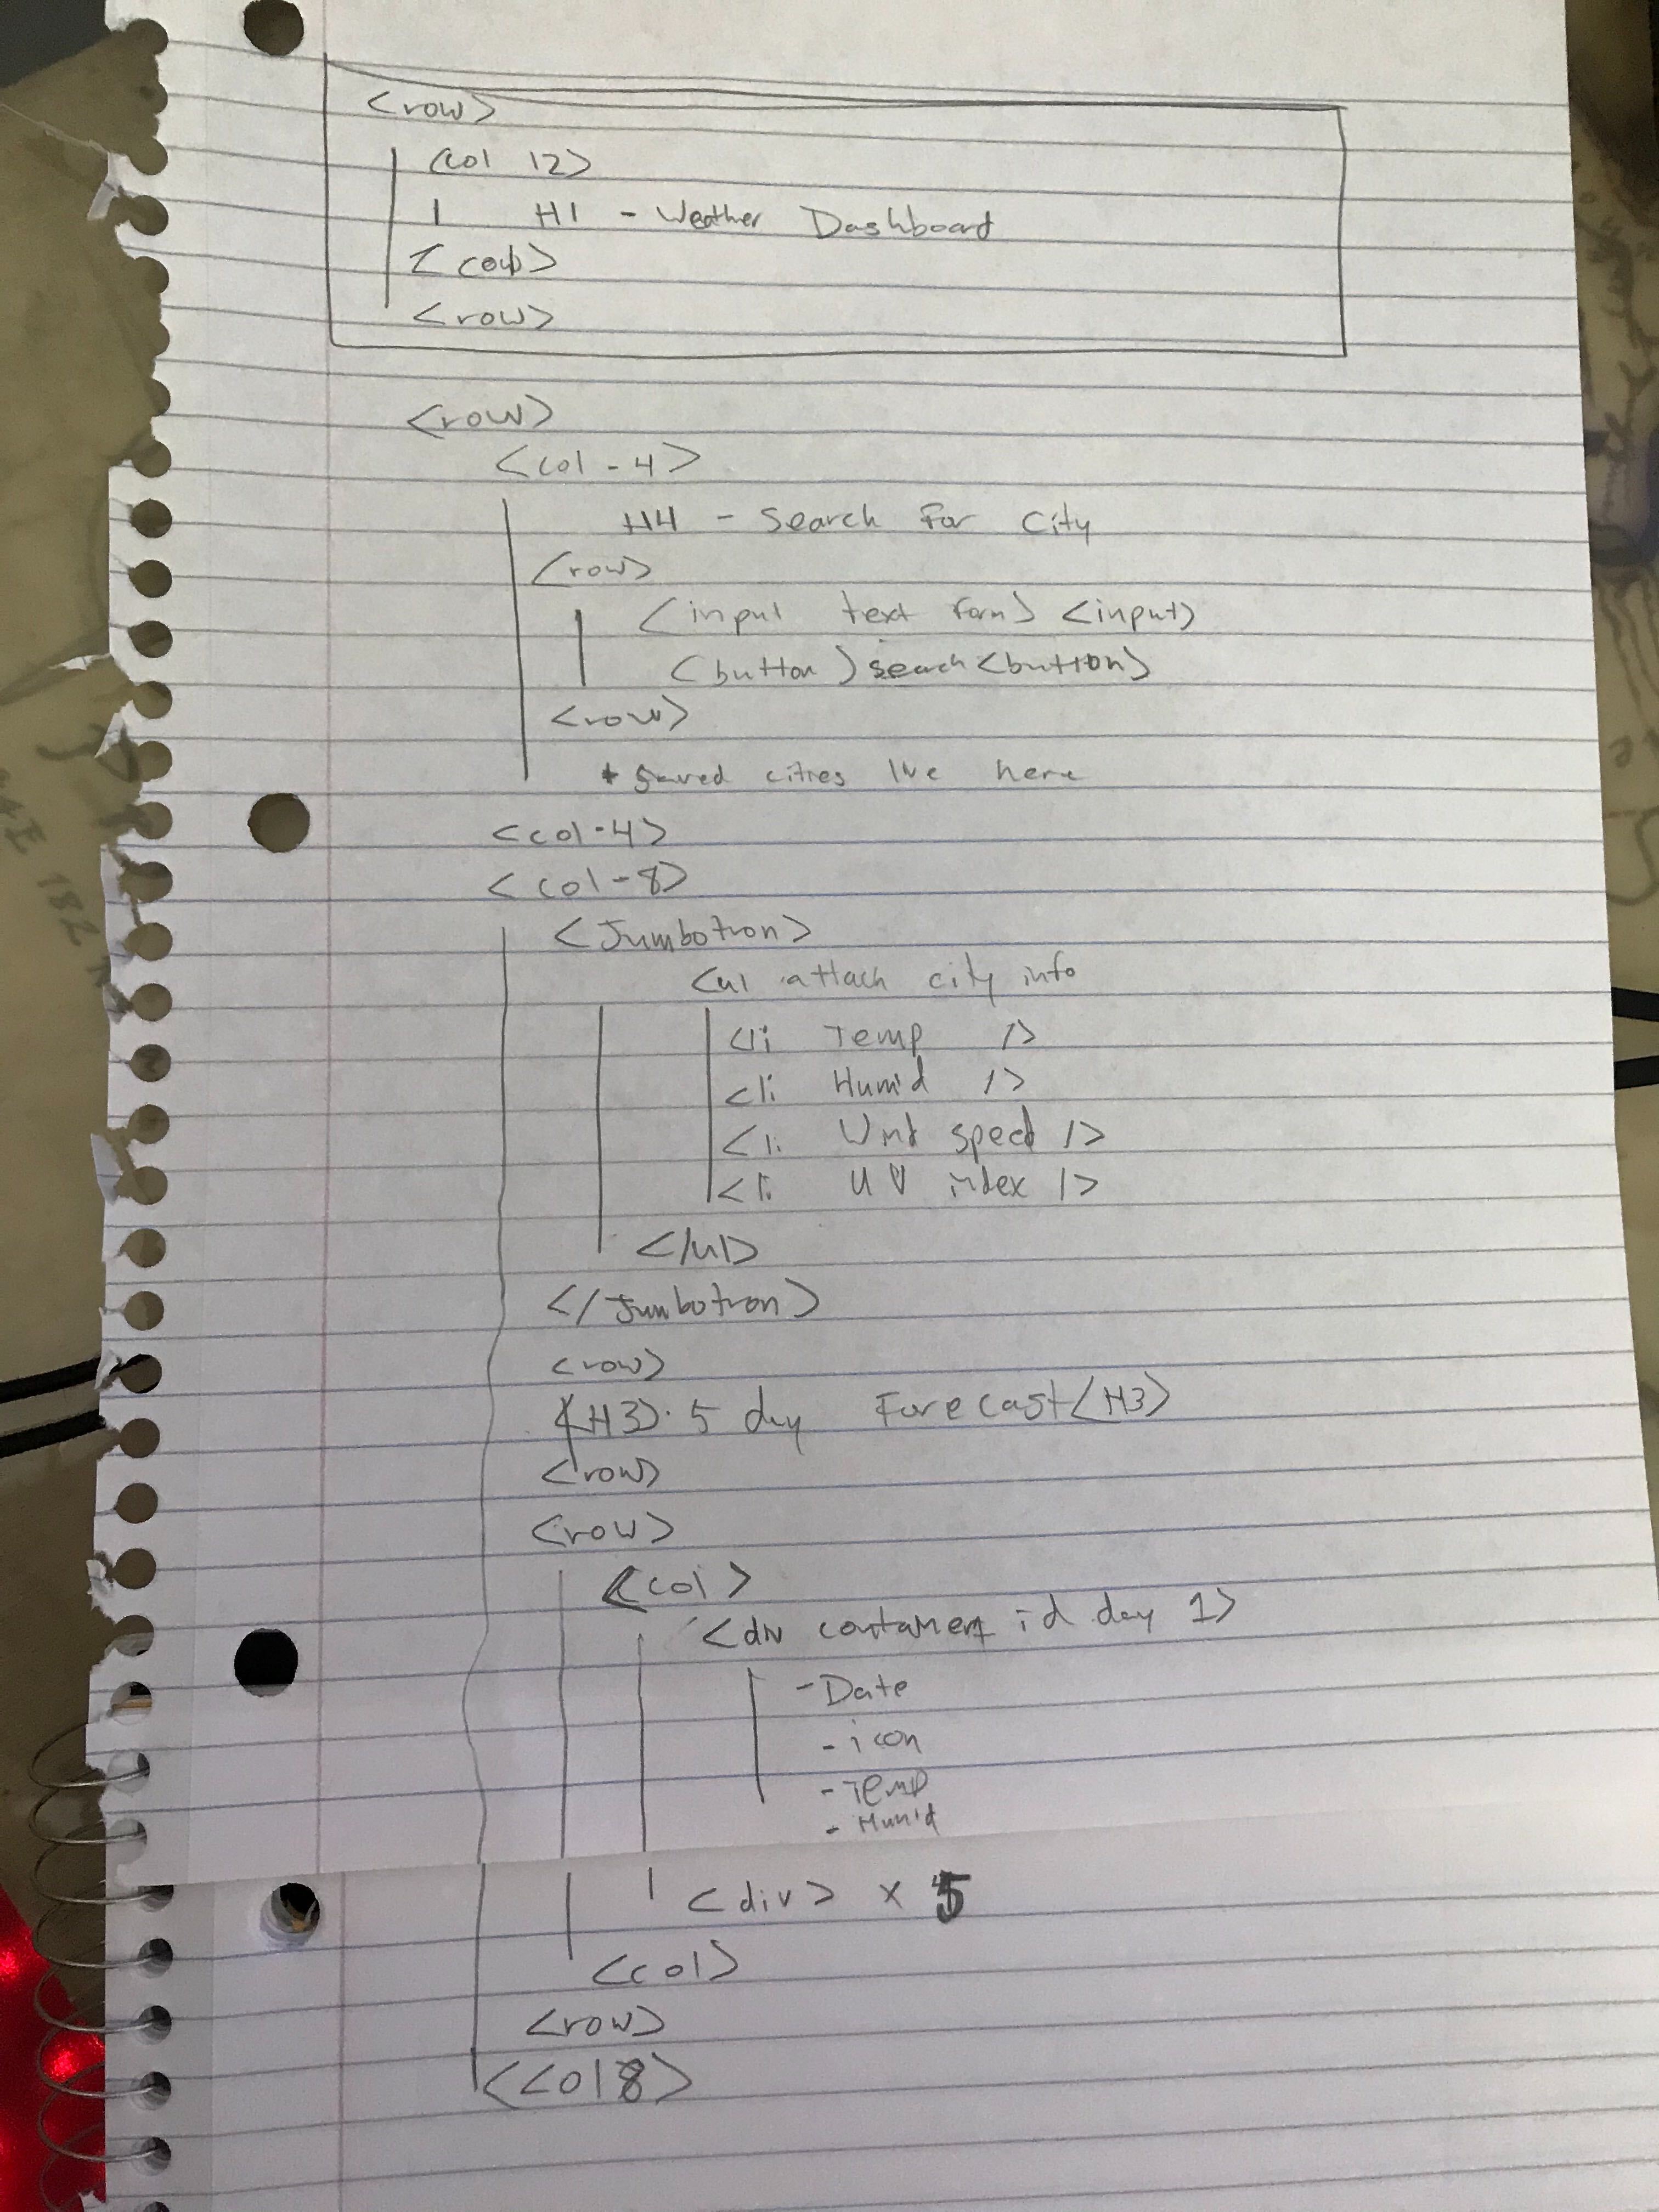 <row>
<col 12>
H1 - Weather Dashboard
<col>
<row>
<row>
<col-4>
H4 - Search For City
<row>
<input text form> <input>
<button> search <button>
<row>
* saved cities live here
<col-4>
<col-8>
<Jumbotron>
<ul attach city info
<li Temp />
<li Humid />
<li Wind speed />
<li UV index />
</ul>
</Jumbotron>
<row>
<H3> 5 day Forecast <H3>
<row>
<row>
<col>
<div container id day 1>
- Date
- icon
- Temp
- Humid
<div> x 5
<col>
<row>
<col 8>